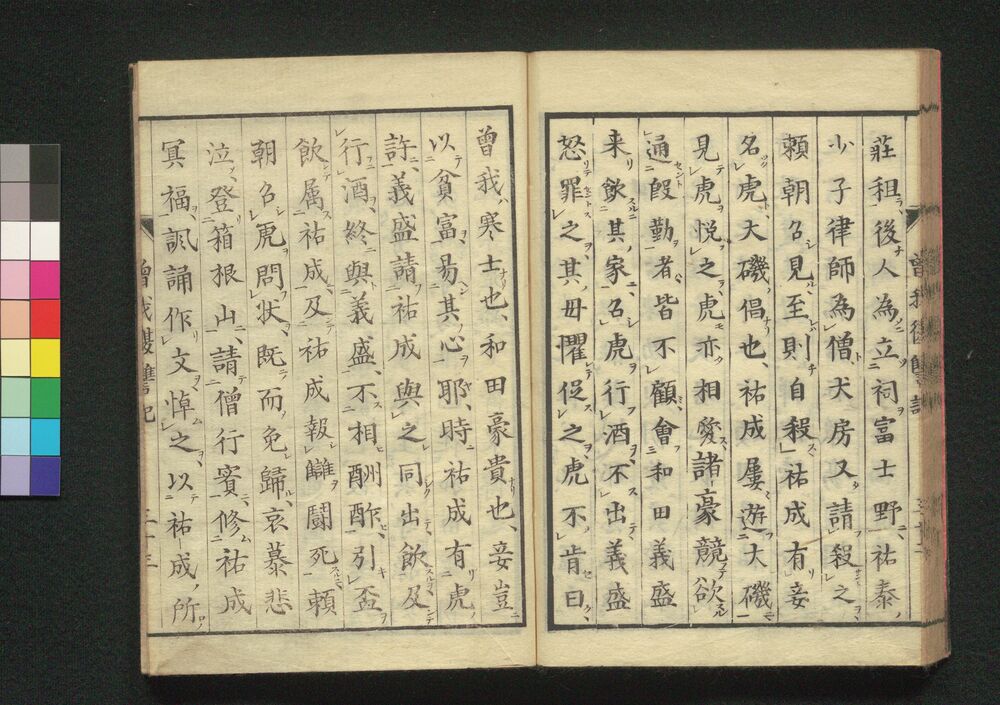 莊租後人為立祠富士野、祐泰、
少子律師為僧、犬房又請殺之、
頼朝召見至則自殺祐成有妾
名虎大磯倡也、祐成屢遊大磯
見虎悦之、虎亦相愛諸豪競欲
通殷勤者皆不顧、會和田義盛
来飲其家、召虎行酒不出義盛
怒罪之、其母懼促之、虎不肯曰、
曾我復讐記
曾我、寒士也、和田豪貴也、妾豈
以貧富易其心耶、時祐成有虎
許、義盛請祐成與之同出飲及
行酒、終與義盛、不相酬酢、引盃
飲属祐成、及祐成報讎闘死頼
朝召虎問状、既而免歸、哀慕悲
泣、登箱根山、請僧行賓、修祐成
冥福、諷誦作文悼之、以祐成所
曾我復讐記 三十三